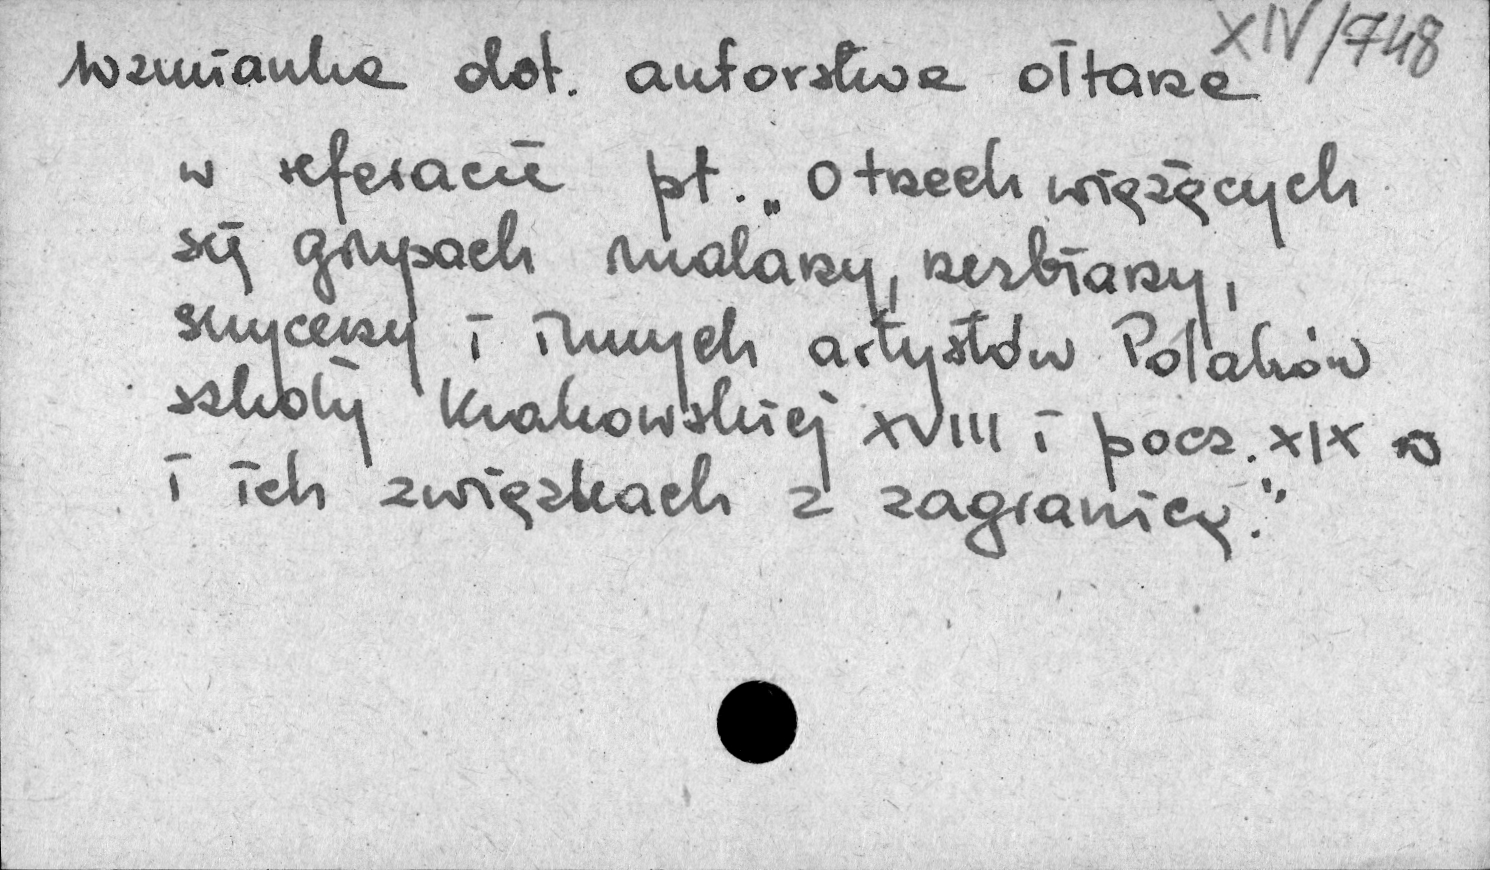 XIV/748
Wzmianka dot. autorstwa ołtarza
w referacie pt. „O trzech wiążących
się grupach malarzy, rzeźbiarzy,
snycerzy i innych artystów Polaków
szkoły Krakowskiej XVIII i pocz. XIX w
i ich związkach z zagranicą.”